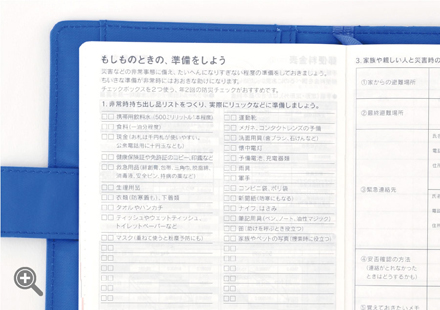 もしものときの、準備をしよう
災害などの非常事態に備え、たいへんになりすぎない程度の準備をしておきましょう。
ちいさな準備が非常時にはおおきな助けになります。
チェックボックスを2つ使う、年2回の防災チェックがおすすめです。
1. 非常時持ち出し品リストをつくり、実際にリュックなどに準備しましょう。
□□ 携帯用飲料水（500ミリリットル1本程度）
□□ 食料（一泊分程度）
□□ 現金（お札は千円札が使いやすい。
公衆電話用に十円玉なども）
□□ 健康保険証や免許証のコピー、印鑑など
□□ 救急用品
消毒液、安全ピン、持病の薬など）
□□ 生理用品
□□ 衣類（防寒着も）、下着類
□□ タオルやハンカチ
□□ ティッシュやウェットティッシュ、
トイレットペーパーなど
□□ マスク（重ねて使うと粉塵予防にも）
□□ 運動靴
□□ メガネ、コンタクトレンズの予備
□□ 洗面用具（歯ブラシ、石けんなど）
□□ 懐中電灯
□□ 予備電池、充電器類
□□ 雨具
□□ 軍手
□□ コンビニ袋、ポリ袋
□□ 新聞紙（防寒にもなる）
□□ ナイフ、はさみ
□□ 筆記用具（ペン、ノート、油性マジック）
□□ 笛（助けを呼ぶとき役立つ）
□□ 家族やペットの写真（捜索時に役立つ）
3. 家族や親しい人と災害時の
①家からの避難場所
②最終避難場所
③緊急連絡先
④安否確認の方法
（連絡がとれなかった
ときはどうするかも）
⑤覚えておきたいメモ